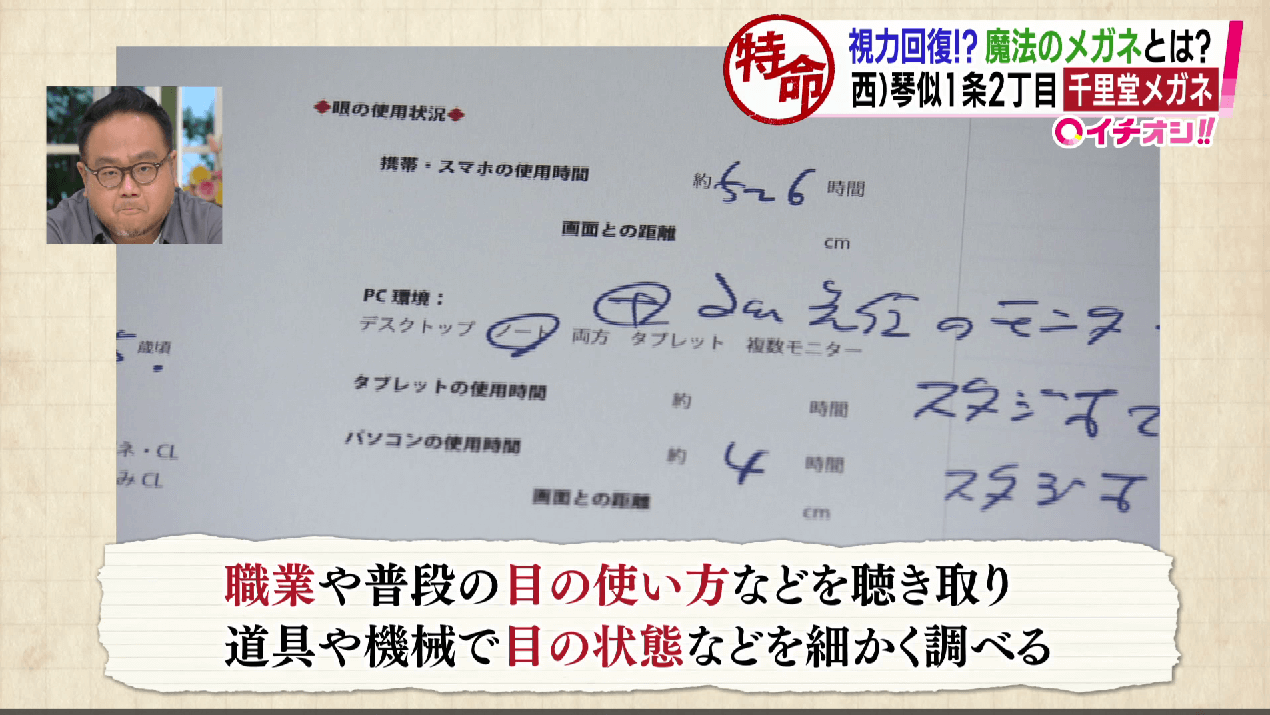 特命
視力回復!? 魔法のメガネとは?
西)琴似1条2丁目 千里堂メガネ
イチオシ!!
◆眼の使用状況◆
携帯・スマホの使用時間 約 5~6 時間
画面との距離 cm
PC環境:
中 2m 先位のモニター
デスクトップ ノート 両方 タブレット 複数モニター
歳頃
タブレットの使用時間 約 時間
スタジオで
ネ・CL
パソコンの使用時間 約 4 時間
みCL
スタジオ
画面との距離 cm
職業や普段の目の使い方などを聴き取り
道具や機械で目の状態などを細かく調べる